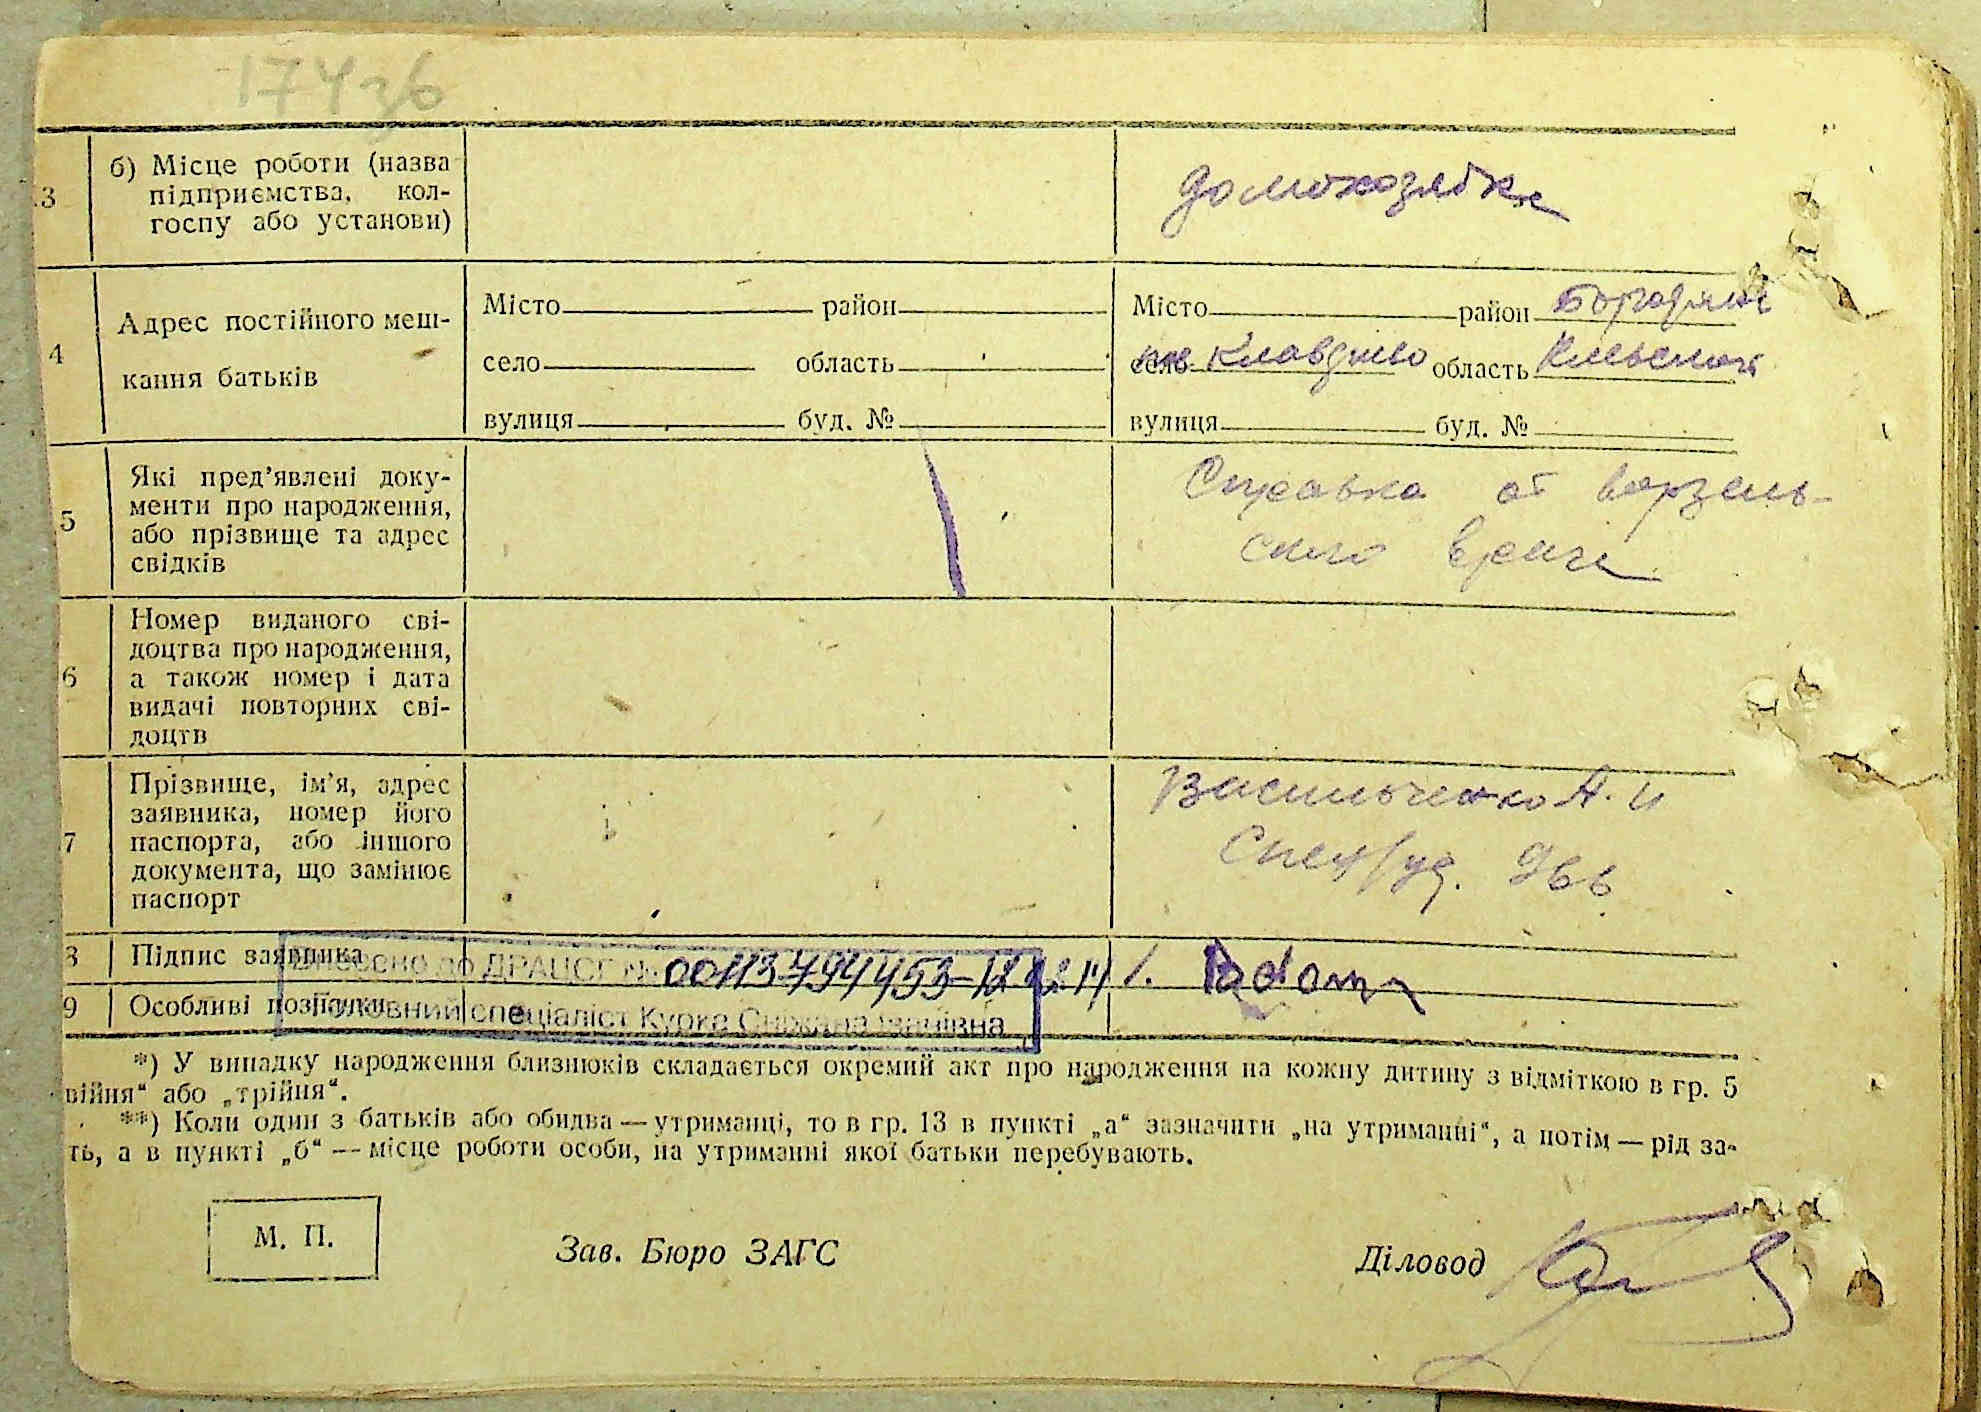 174 зб
3
б) Місце роботи (назва
підприємства, кол-
госпу або установи)
домохозяйка
4
Адрес постійного меш-
кання батьків
Місто район
село область
вулиця буд. №
Місто район Бородянс
село Клавдиево область Киевская
вулиця буд. №
5
Які пред’явлені доку-
менти про народження,
або прізвище та адрес
свідків
Справка от ворзель-
ского врача
6
Номер виданого сві-
доцтва про народження,
а також номер і дата
видачі повторних сві-
доцтв
7
Прізвище, ім’я, адрес
заявника, номер його
паспорта, або іншого
документа, що замінює
паспорт
Васильченко А. И
8
Підпис заявника
Внесено до ДРАЦСГ № 00113794453
9
Особливі позначки
Головний спеціаліст Курка Сніжана Іванівна
*) У випадку народження близнюків складається окремий акт про народження на кожну дитину з відміткою в гр. 5
війня“ або „трійня“.
**) Коли один з батьків або обидва — утриманці, то в гр. 13 в пункті „а“ зазначити „на утриманні“, а потім — рід за-
ть, а в пункті „б“ — місце роботи особи, на утриманні якої батьки перебувають.
М. П.
Зав. Бюро ЗАГС
Діловод